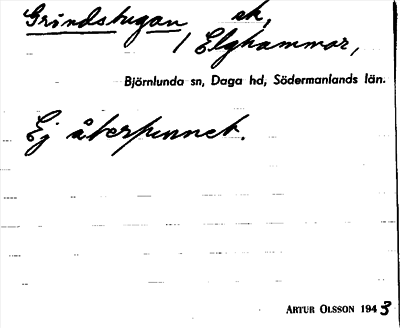 Grindstugan ek,
/ Elghammar,
Björnlunda sn, Daga hd, Södermanlands län.
Ej återfunnet.
ARTUR OLSSON 1943